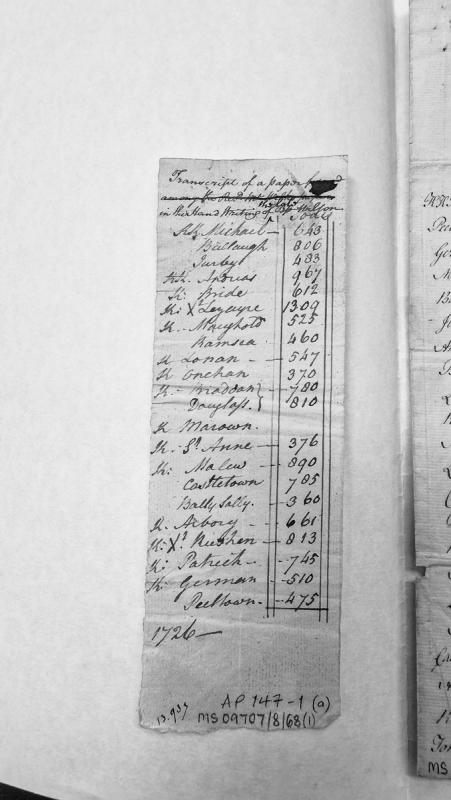 Transcript of a paper
in the Hand Writing of the late Bp Wilson
Souls
KK. Michael - 643
Ballaugh 806
Jurby 483
KK. Andreas 967
K. Bride 612
K: Xt Lezayre 1309
K. Maughold 525
Ramsea 460
K Lonan - 547
K Onchan 370
K. Braddan 780
Douglass. 810
K Marown.
K. St. Anne - 376
K: Malew - 890
Castletown 785
Bally Sally. - 360
K. Arbory - 661
K: Xt. Rushen - 813
K: Patrick - 745
K: German - 510
Peeltown. - 475
1726
13.937
AP 147-1 (a)
MS 09707/8/68(1)
MS